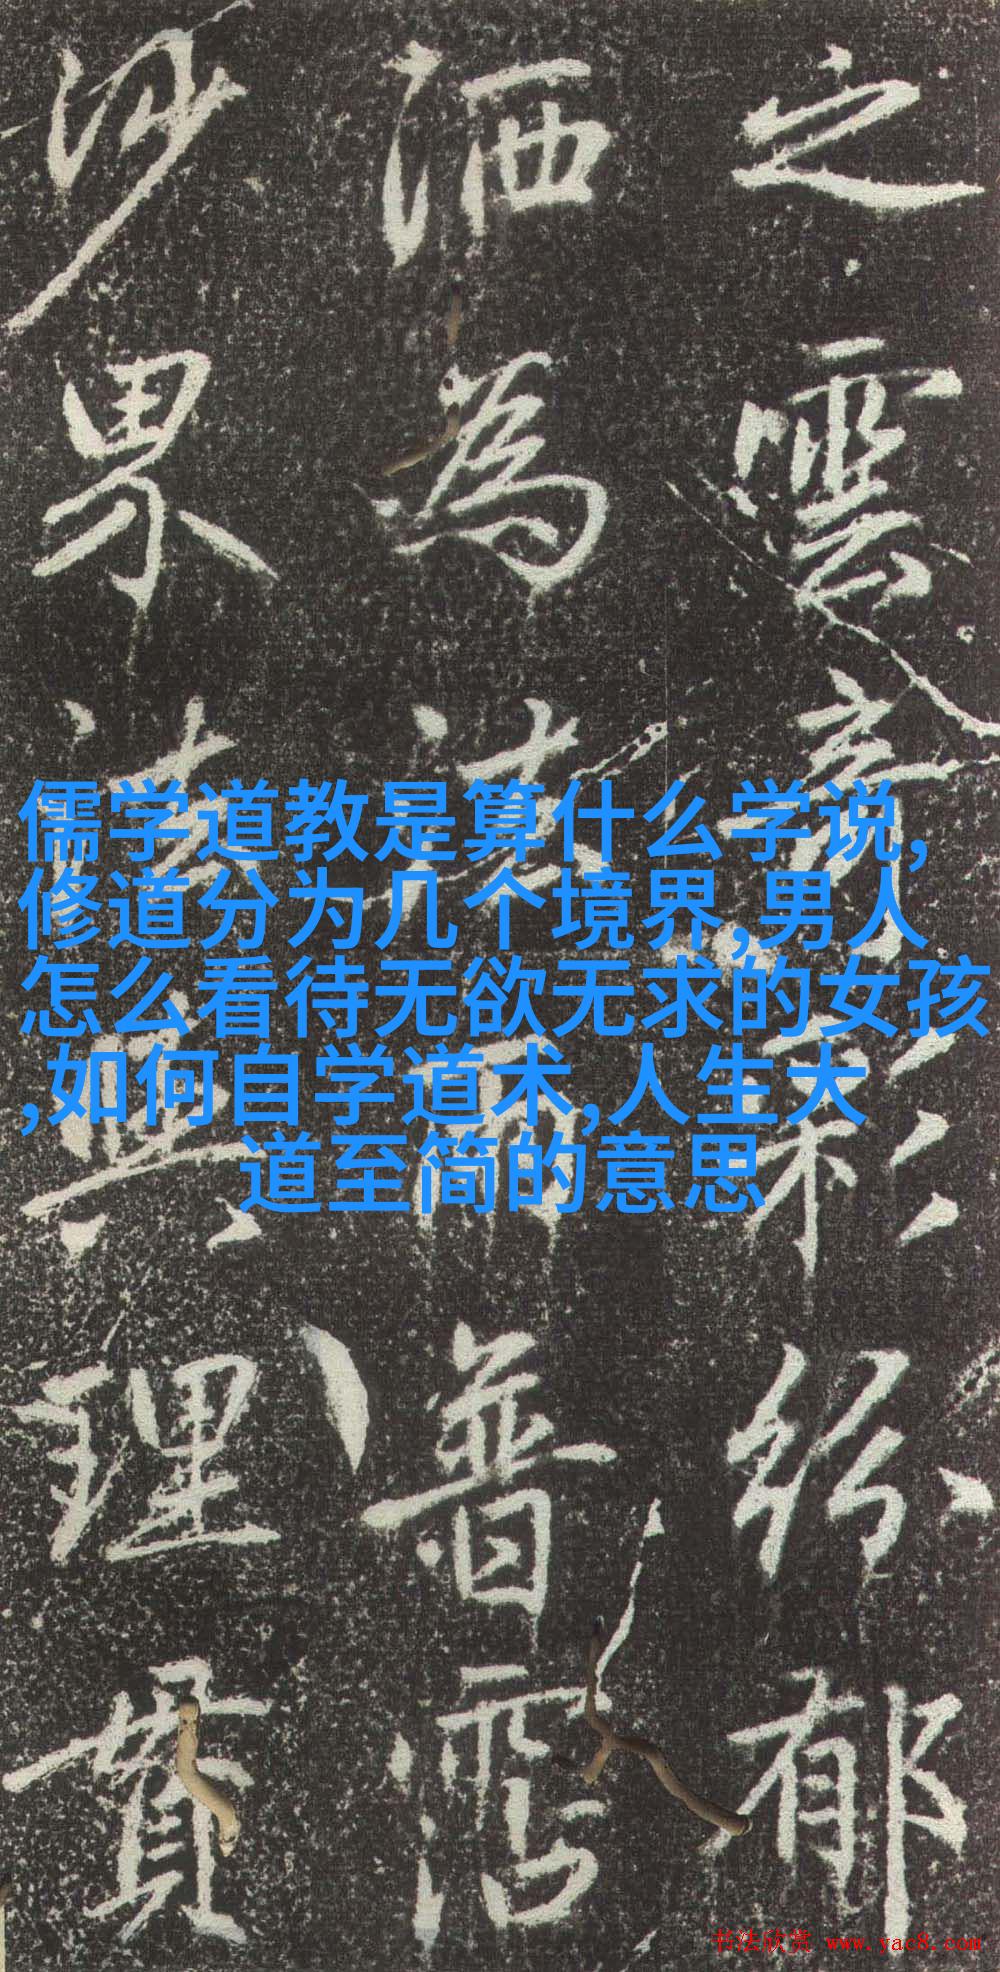 之雲章彩紛郁
洒為法雨普霑
沙界法與理貫
儒学道教是算什么学说,
修道分为几个境界,男人
怎么看待无欲无求的女孩
,如何自学道术,人生大
道至简的意思
书法欣赏 www.yac8.com